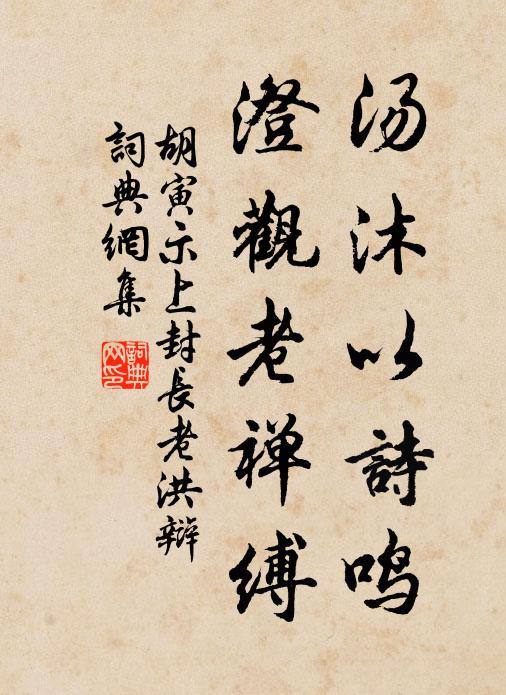 汤沐以詩鸣
澄觀老禅缚
胡寅示上封長老洪辯
詞典網集
詞典网印